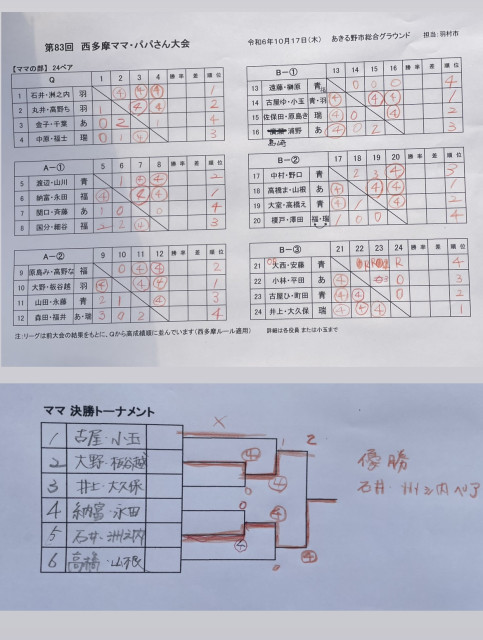 第83回 西多摩ママ・パパさん大会 令和6年10月17日(木) あきる野市総合グラウンド 担当:羽村市
【ママの部】 24ペア
Q 1 2 3 4 勝率 差 順位
1 石井・洲之内 羽 ④ ④ ④ 1
2 丸井・高野ち 羽 1 ④ ④ 2
3 金子・千葉 あ 0 2 1 4
4 中原・福士 瑞 0 1 ④ 3
A-① 5 6 7 8 勝率 差 順位
5 渡辺・山川 青 1 ④ ④ 2
6 納富・永田 福 ④ ④ ④ 1
7 関口・斉藤 あ 1 0 0 4
8 国分・細谷 福 2 2 ④ 3
A-② 9 10 11 12 勝率 差 順位
9 原島み・高野な 福 0 ④ ④ 2
10 大野・板谷越 羽 ④ ④ ④ 1
11 山田・永藤 青 2 1 ④ 3
12 森田・福井 あ・瑞 3 0 2 4
B-① 13 14 15 16 勝率 差 順位
13 遠藤・榊原 青 0 0 0 4
14 古屋ゆ・小玉 青・羽 ④ ④ ④ 1
15 佐保田・原島き 瑞 ④ 0 ④ 2
16 浦野 あ ④ 0 2 3
B-② 17 18 19 20 勝率 差 順位
17 中村・野口 青 2 3 ④ 3
18 高橋ま・山根 あ ④ ④ ④ 1
19 大室・高橋え 青 ④ 1 ④ 2
20 榎戸・澤田 福・瑞 1 0 0 4
B-③ 21 22 23 24 勝率 差 順位
21 大西・安藤 青 R 4
22 小林・平田 あ ④ 0 3
23 古屋ひ・町田 青 ④ ④ 0 2
24 井上・大久保 瑞 ④ ④ ④ 1
注:リーグは前大会の結果をもとに、Qから高成績順に並んでいます(西多摩ルール適用) 詳細は各役員 または小玉まで
ママ 決勝トーナメント
1 古屋・小玉
2 大野・板谷越
3 井上・大久保
4 納富・永田
5 石井・洲之内
6 高橋・山根
× ④ 0 1 ④ 2
0 ④ ④ 0 ④
優勝
石井・洲之内ペア